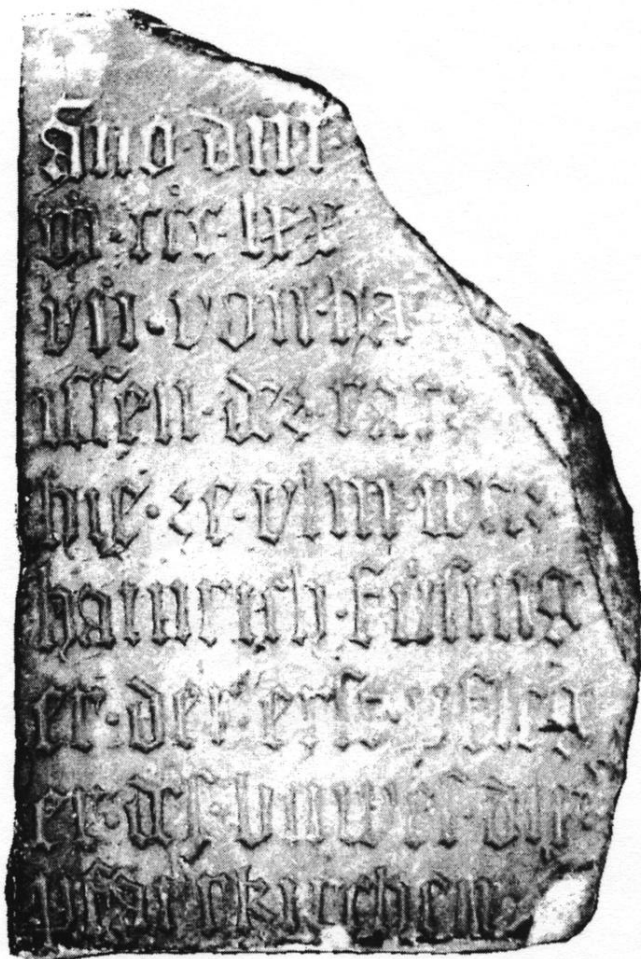 Ano·dmi·
m·ccc·lxx
vii·von·ha
issen·dez·ratz
hie·ze·vlm·
hainrich·füsing
er·der·erst·pfleg
er·des·buwes·dirr·
pfarrkirchen